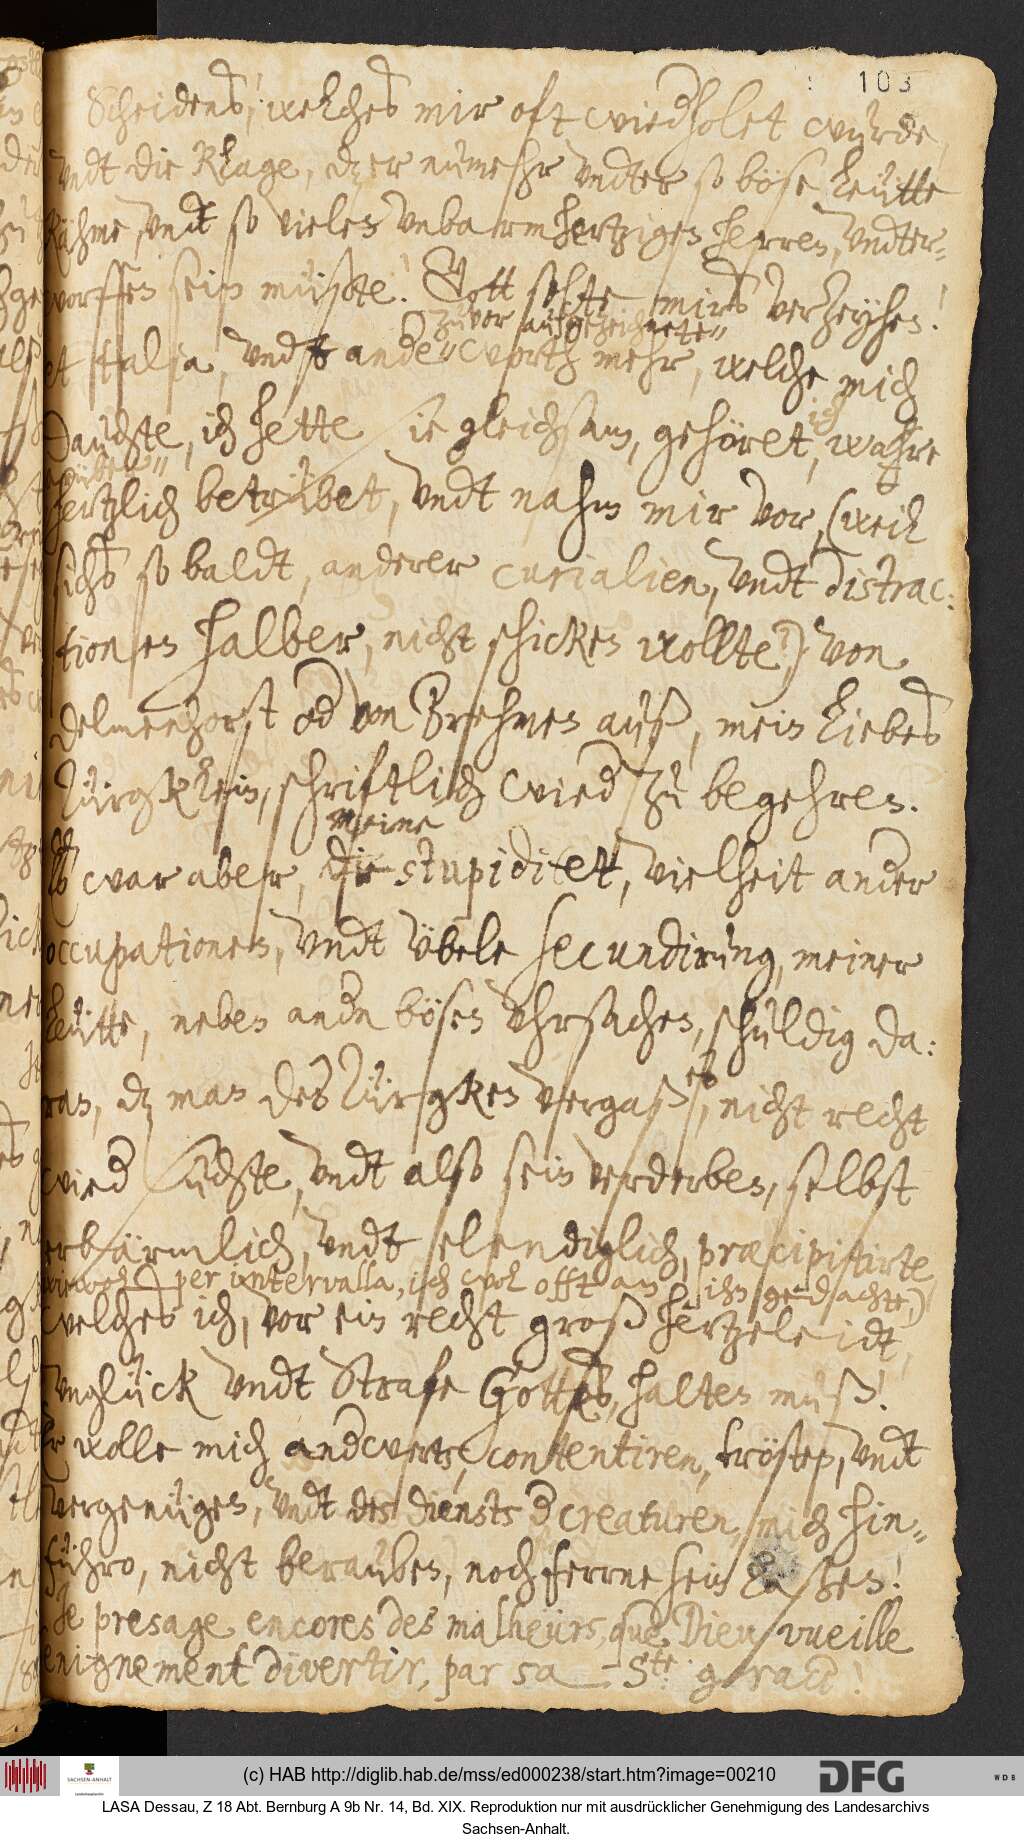 103
Scheidens, welches mir oft wiedholet wurde,
vndt die Klage, dz er numehr vndter so böse Leütte
kähme, vndt so vielen vnbarmhertzigen herren, vndter-
worffen sein müßte! Gott solte mirs verzeyhen!
zuvor aufgezeichnete
et talia, vndt ande worth mehr, welche mich
ich
dauchte, ich hette sie gleichsam, gehöret, wahre
hertzlich betrübet, vndt nahm mir vor, (weil
sichs so baldt, anderer curialien, vndt distrac:
tionen halber, nicht schicken wollte) von
Delmenhorst od von Brehmen auß, mein liebes
Türgklein, schriftlich wied zu begehren.
meine
Es war aber, die stupiditet, vielheit ander
occupationen, vndt übele secundirung, meiner
Leütte, neben andn bösen vhrsachen, schuldig da:
ran, dz man des Türgken vergaß, nicht recht
wied suchte, vndt also sein verderben, selbst
erbärmlich, vndt elendiglich, præcipitirte
(wiewol per intervalla, ich wol offt an ihn gedachte,)
welches ich, vor ein recht groß hertzeleidt,
vnglück vndt Strafe Gottes, halten muß!
Er wolle mich andwerts, contentiren, trösten, vndt
vergenügen, vndt des diensts d creaturen, mich hin-
führo, nicht berauben, noch ferrne sein laßen!
Je presage encores des malheurs, que Dieu vueille
benignement divertir, par sa Ste: grace!
(c) HAB http://diglib.hab.de/mss/ed000238/start.htm?image=00210
SACHSEN-ANHALT
DFG
WDB
LASA Dessau, Z 18 Abt. Bernburg A 9b Nr. 14, Bd. XIX. Reproduktion nur mit ausdrücklicher Genehmigung des Landesarchivs
Sachsen-Anhalt.